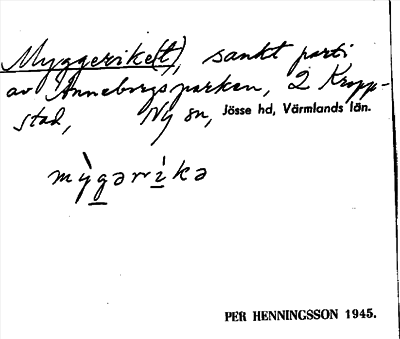 Myggerike(t), sankt parti
av Anneborgsparken, 2 Kropp-
stad, Ny sn, Jösse hd, Värmlands län.
mỳgərrìkə
PER HENNINGSSON 1945.